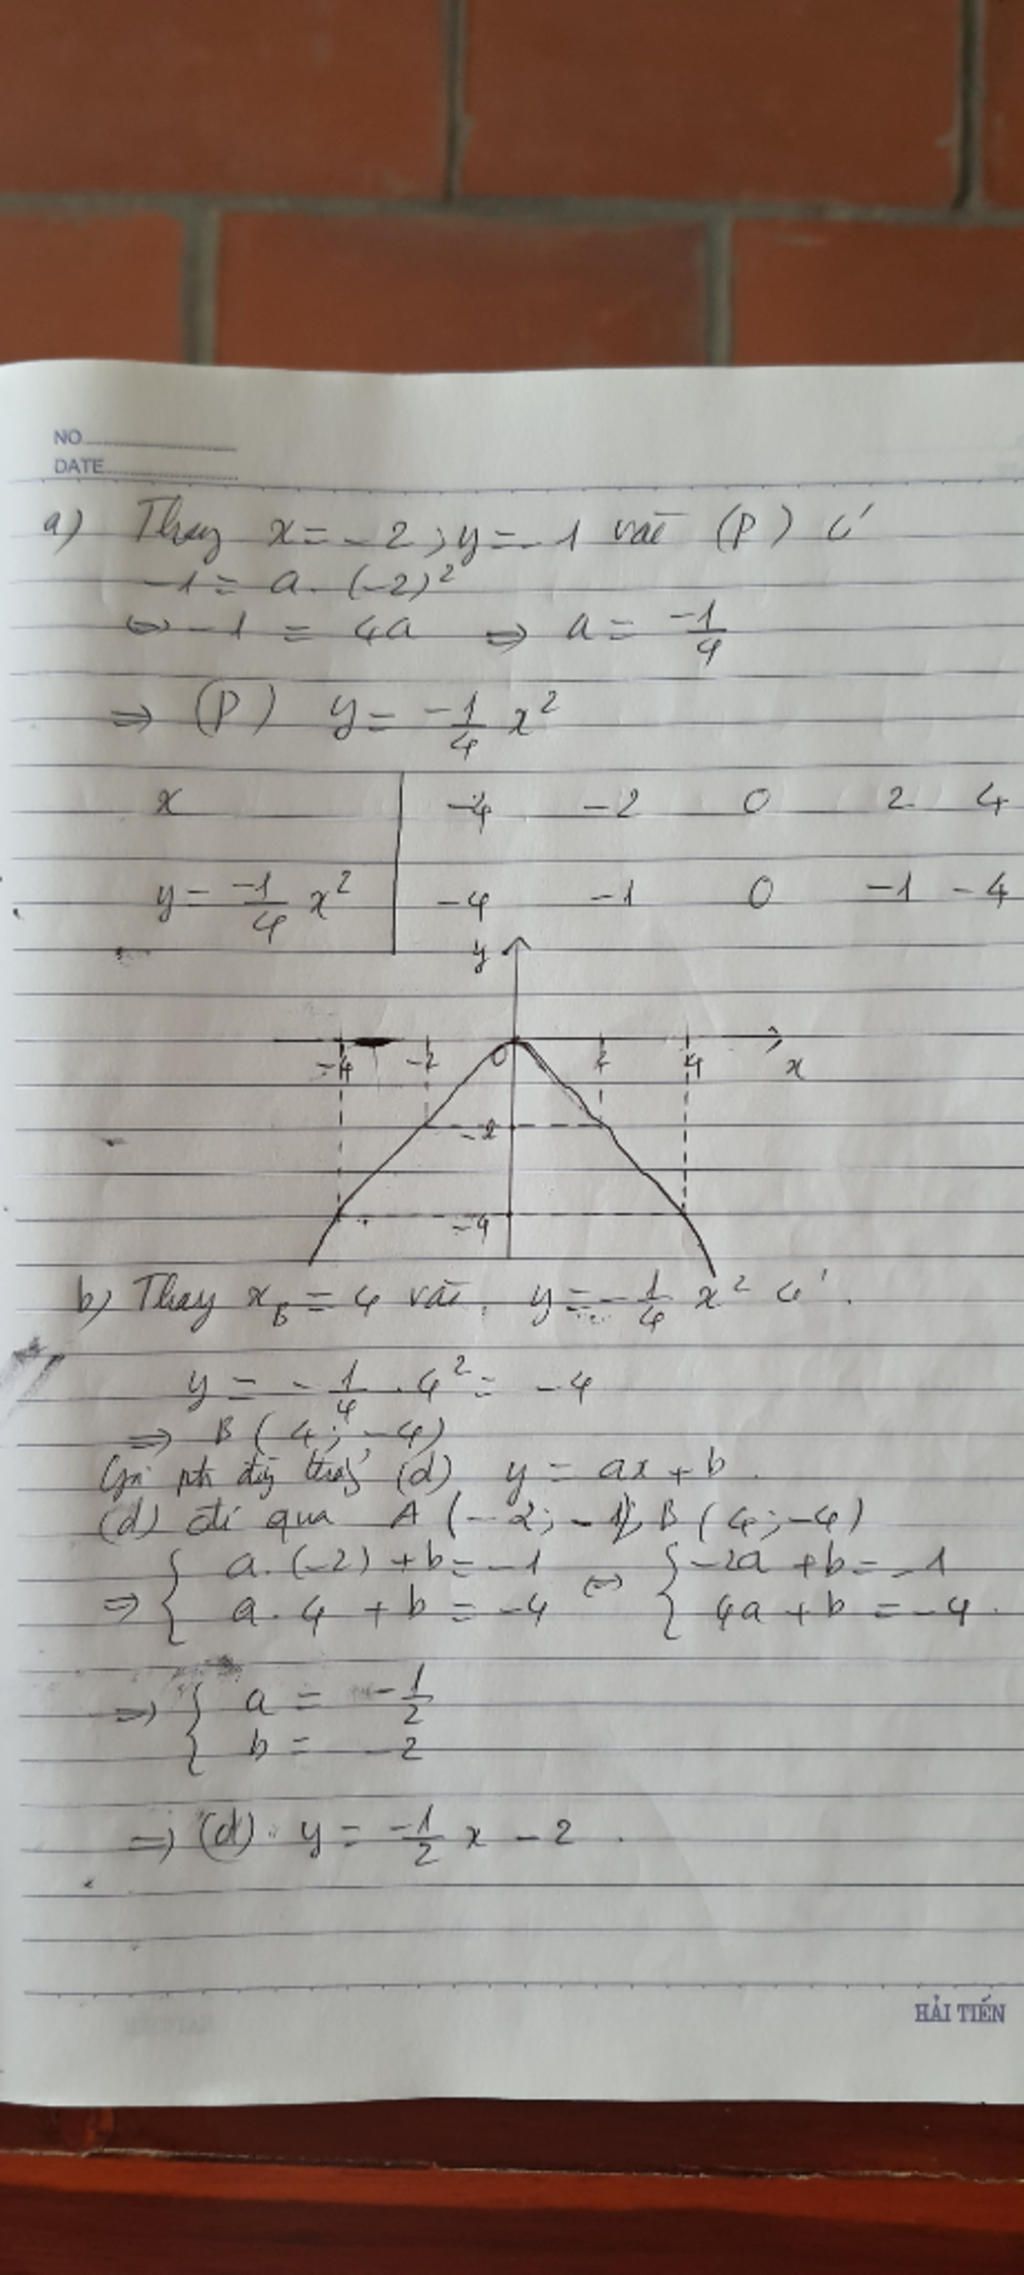 NO
DATE
a) Thay x = -2 ; y = -1 vào (P) có
-1 = a. (-2)²
⇔ -1 = 4a ⇒ a = -1/4
⇒ (P) y = -1/4 x²
x -4 -2 0 2 4
y = -1/4 x² -4 -1 0 -1 -4
y
-4 -2 0 2 4 x
-2
-4
b) Thay x_B = 4 vào y = -1/4 x² có
y = -1/4 . 4² = -4
⇒ B (4; -4)
Gọi pt đg thg (d) y = ax + b.
(d) đi qua A (-2; -1); B (4; -4)
⇒ { a. (-2) + b = -1 ⇔ { -2a + b = -1
a. 4 + b = -4 4a + b = -4.
⇒ { a = -1/2
b = -2
⇒ (d) y = -1/2 x - 2.
HẢI TIẾN